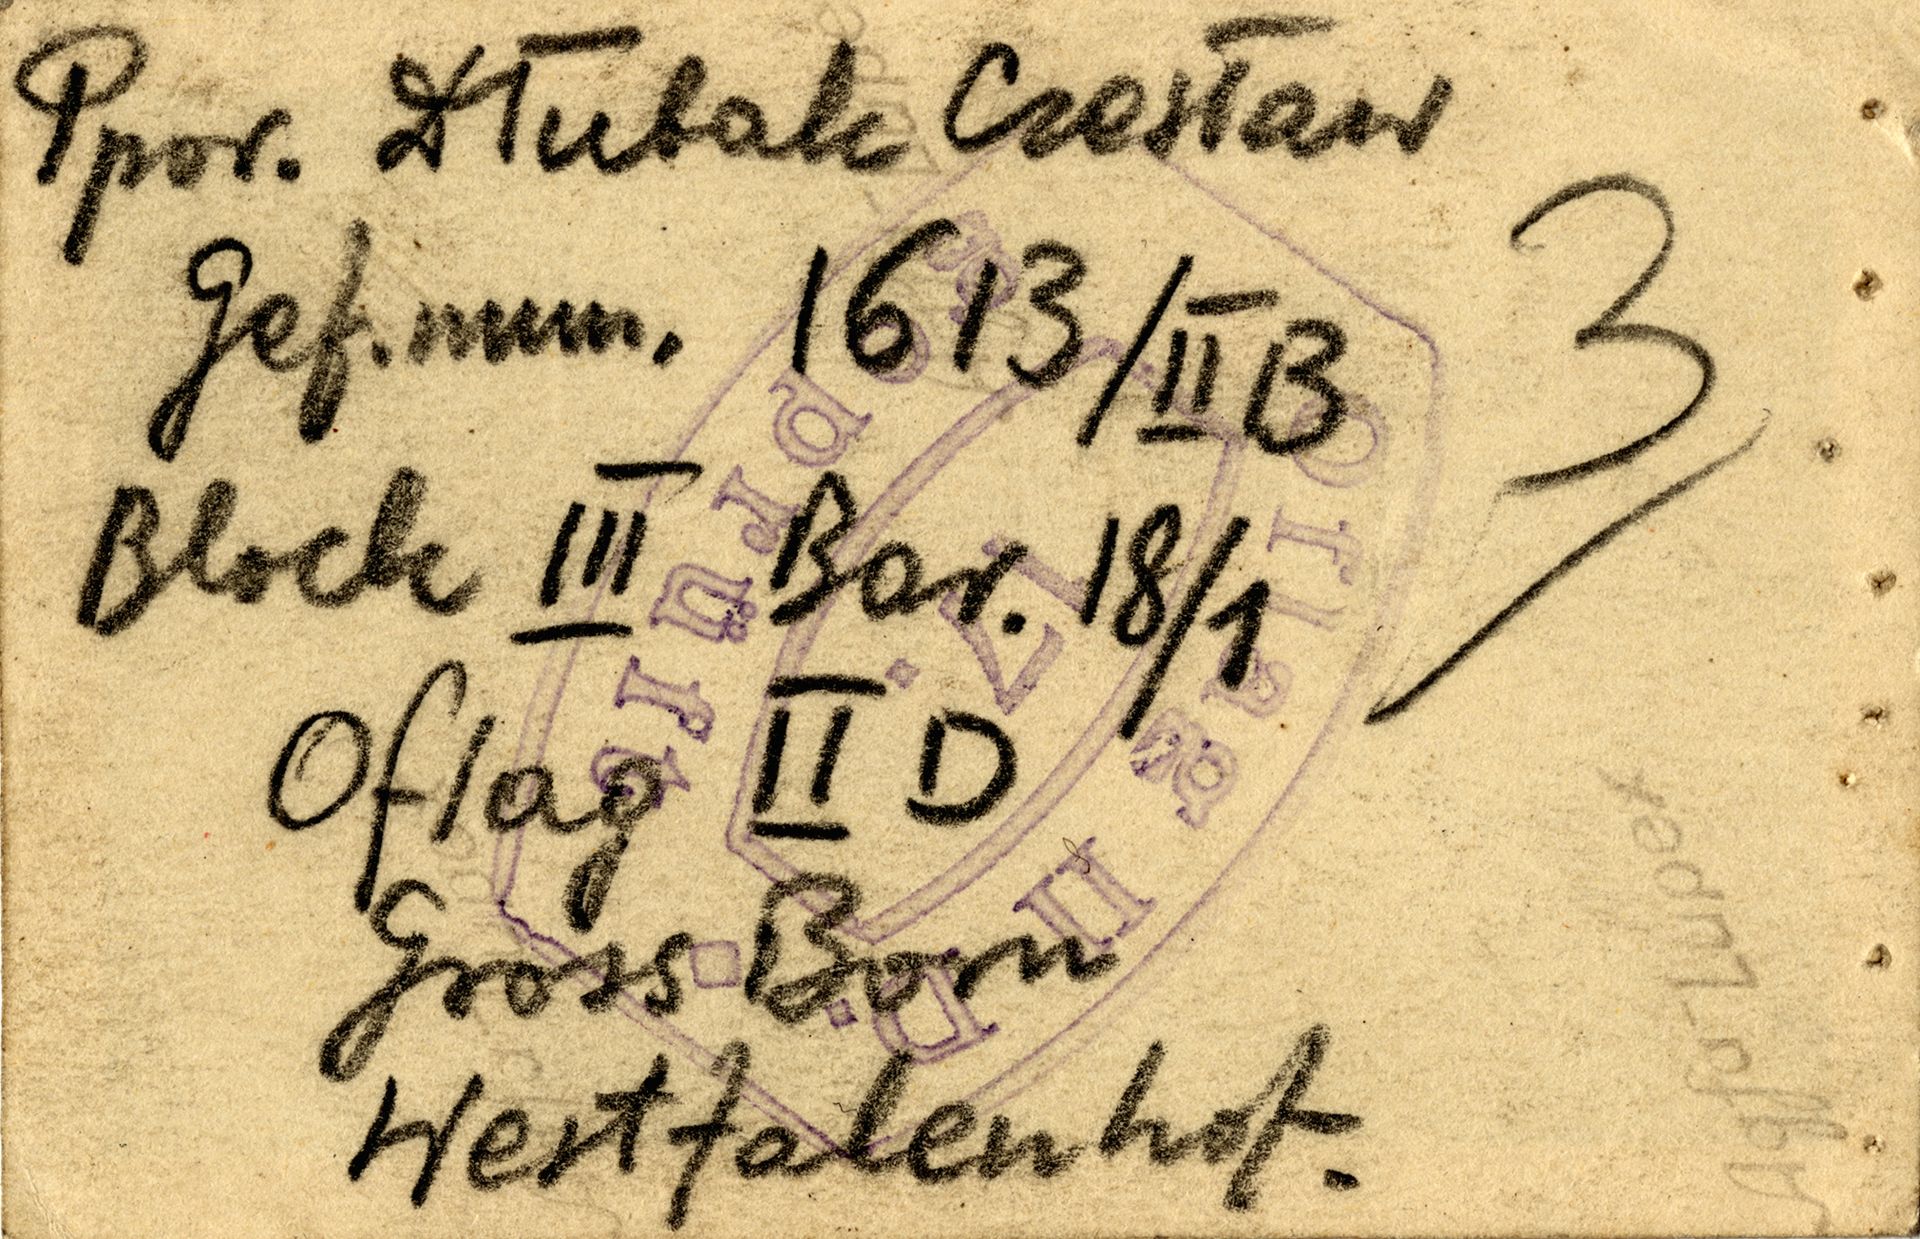 Ppor. Dłubak Czesław
Gef. num. 1613/IIB
Block III Bar. 18/1
Oflag II D
Gross Born
Westfalenhof.
3
Oflag II D.
7.
Geprüft